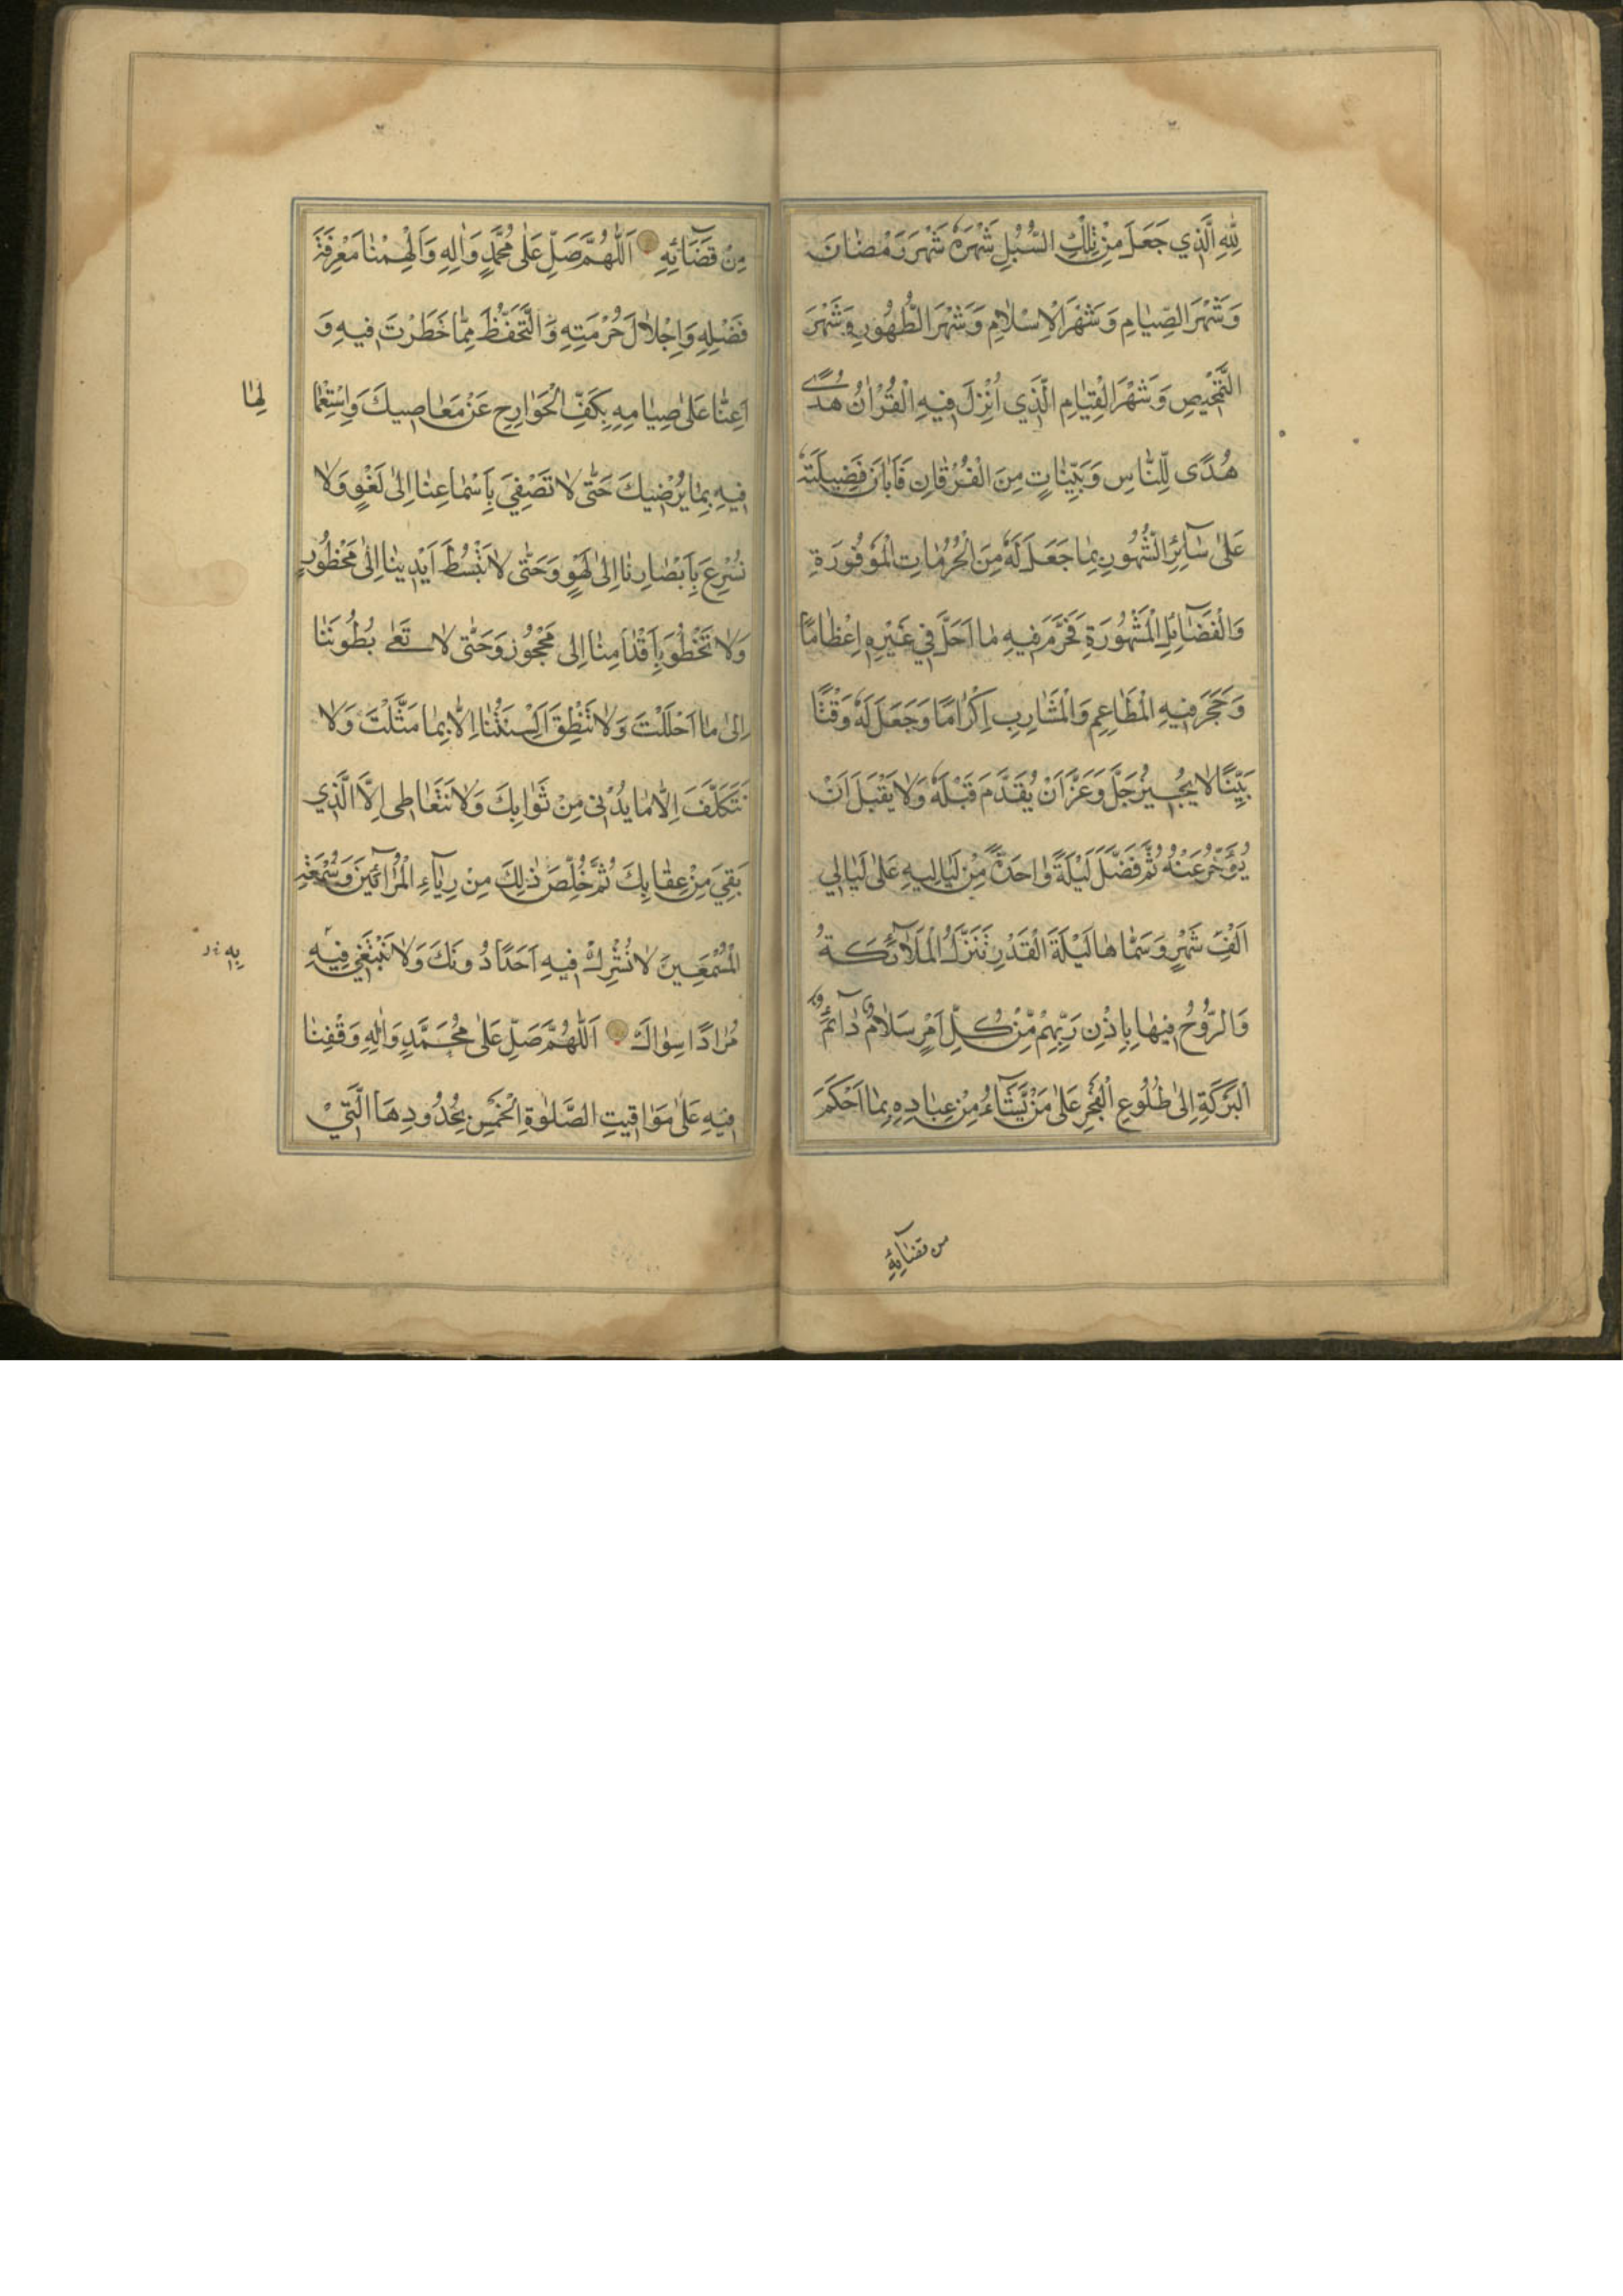 لِلّٰهِ الَّذِي جَعَلَ مِنْ تِلْكَ السُّبُلِ شَهْرَهُ شَهْرَ رَمَضٰانَ
وَشَهْرَ الصِّيٰامِ وَشَهْرَ الْاِسْلٰامِ وَشَهْرَ الطَّهُورِ وَشَهْرَ
التَّمْحٖيصِ وَشَهْرَ الْقِيٰامِ الَّذٖي اُنْزِلَ فٖيهِ الْقُرْاٰنُ هُدًى
هُدًى لِلنّٰاسِ وَبَيِّنٰاتٍ مِنَ الْفُرْقٰانِ فَاَبٰانَ فَضٖيلَتَهُ
عَلٰى سٰآئِرِ الشُّهُورِ بِمٰا جَعَلَ لَهُ مِنَ الْحُرُمٰاتِ الْمَوْفُورَةِ
وَالْفَضٰآئِلِ الْمَشْهُورَةِ فَحَرَّمَ فٖيهِ مٰا اَحَلَّ فٖي غَيْرِهٖ اِعْظٰامًا
وَحَجَرَ فٖيهِ الْمَطٰاعِمِ وَالْمَشٰارِبِ اِكْرٰامًا وَجَعَلَ لَهُ وَقْتًا
بَيِّنًا لٰا يُجٖيزُ جَلَّ وَعَزَّ اَنْ يُقَدَّمَ قَبْلَهُ وَلٰا يَقْبَلَ اَنْ
يُؤَخَّرَ عَنْهُ ثُمَّ فَضَّلَ لَيْلَةً وٰاحِدَةً مِنْ لَيٰالٖيهِ عَلٰى لَيٰالٖي
اَلْفِ شَهْرٍ وَسَمّٰاهٰا لَيْلَةَ الْقَدْرِ تَنَزَّلُ الْمَلٰآئِكَةُ
وَالرُّوحُ فٖيهٰا بِاِذْنِ رَبِّهِمْ مِنْ كُلِّ اَمْرٍ سَلٰامٌ دٰآئِمُ
الْبَرَكَةِ اِلٰى طُلُوعِ الْفَجْرِ عَلٰى مَنْ يَشٰآءُ مِنْ عِبٰادِهٖ بِمٰا اَحْكَمَ
من قضٰآئِهِ
مِنْ قَضَآئِهِ اَللّٰهُمَّ صَلِّ عَلٰى مُحَمَّدٍ وَاٰلِهِ وَاَلْهِمْنٰا مَعْرِفَةَ
فَضْلِهِ وَاِجْلٰالَ حُرْمَتِهِ وَالتَّحَفُّظَ مِمّٰا حَظَرْتَ فٖيهِ وَ
اَعِنّٰا عَلٰى صِيٰامِهِ بِكَفِّ الْجَوٰارِحِ عَنْ مَعٰاصٖيكَ وَاسْتِعْمٰا
لِهٰا
فٖيهِ بِمٰا يُرْضٖيكَ حَتّٰى لٰا تَصْغِيَ بِاَسْمٰاعِنٰا اِلٰى لَغْوٍ وَلٰا
نُسْرِعَ بِاَبْصٰارِنٰا اِلٰى لَهْوٍ وَحَتّٰى لٰا نَبْسُطَ اَيْدِيَنٰا اِلٰى مَحْظُورٍ
وَلٰا نَخْطُوَ بِاَقْدٰامِنٰا اِلٰى مَحْجُوزٍ وَحَتّٰى لٰا تَعٰى بُطُونَنٰا
اِلٰى مٰا اَحْلَلْتَ وَلٰا تَنْطِقَ اَلْسِنَتُنٰا اِلّٰا بِمٰا مَثَّلْتَ وَلٰا
نَتَكَلَّفَ اِلّٰا مٰا يُدْنٖى مِنْ ثَوٰابِكَ وَلٰا نَتَعٰاطٰى اِلَّا الَّذٖي
يَقِيَ مِنْ عِقٰابِكَ ثُمَّ خَلِّصْ ذٰلِكَ مِنْ رِيٰآءِ الْمُرٰآئٖينَ وَسُمْعَةِ
الْمُسْمِعٖينَ لٰا نُشْرِكُ فٖيهِ اَحَدًا دُونَكَ وَلٰا نَبْتَغٖي فٖيهِ
بِهِ
مُرٰادًا سِوٰاكَ اَللّٰهُمَّ صَلِّ عَلٰى مُحَمَّدٍ وَاٰلِهِ وَقِفْنٰا
فٖيهِ عَلٰى مَوٰاقٖيتِ الصَّلٰوةِ الْخَمْسِ بِحُدُودِهَا الَّتٖيْ